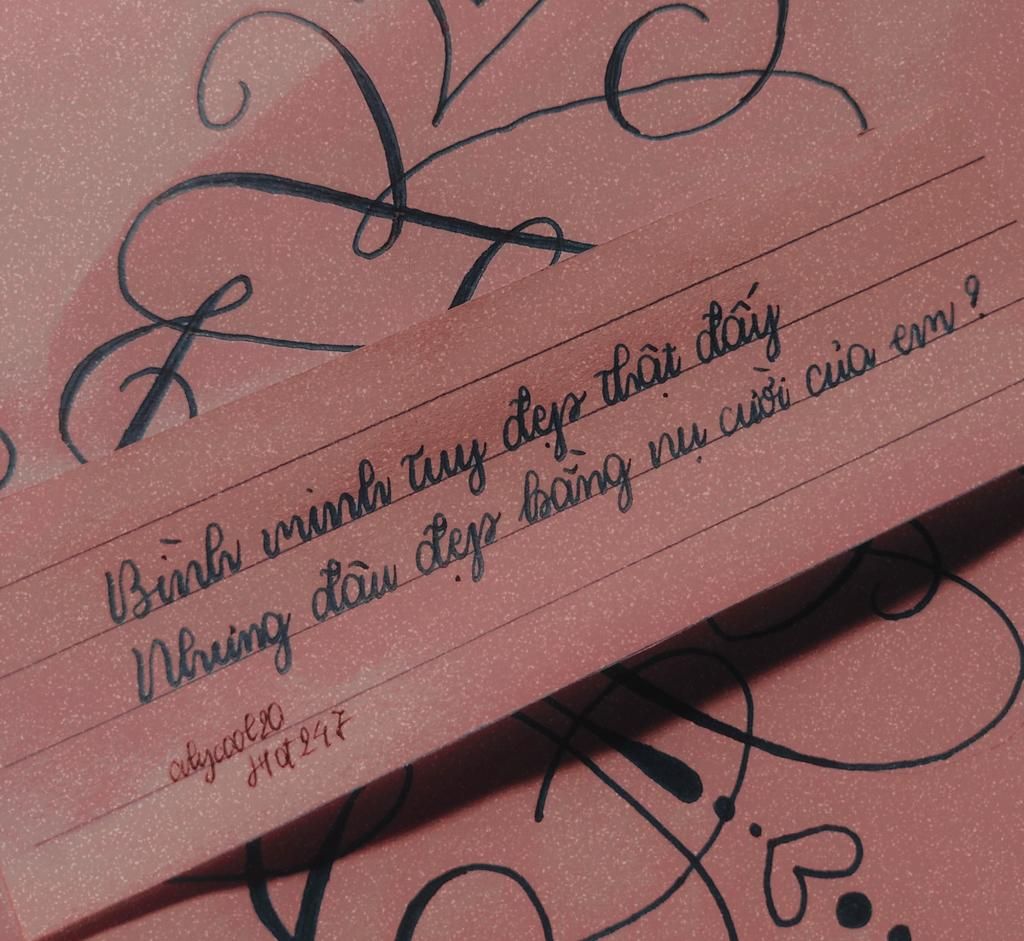 Bình minh tuy đẹp thật đấy
Nhưng đâu đẹp bằng nụ cười của em?
alycool20